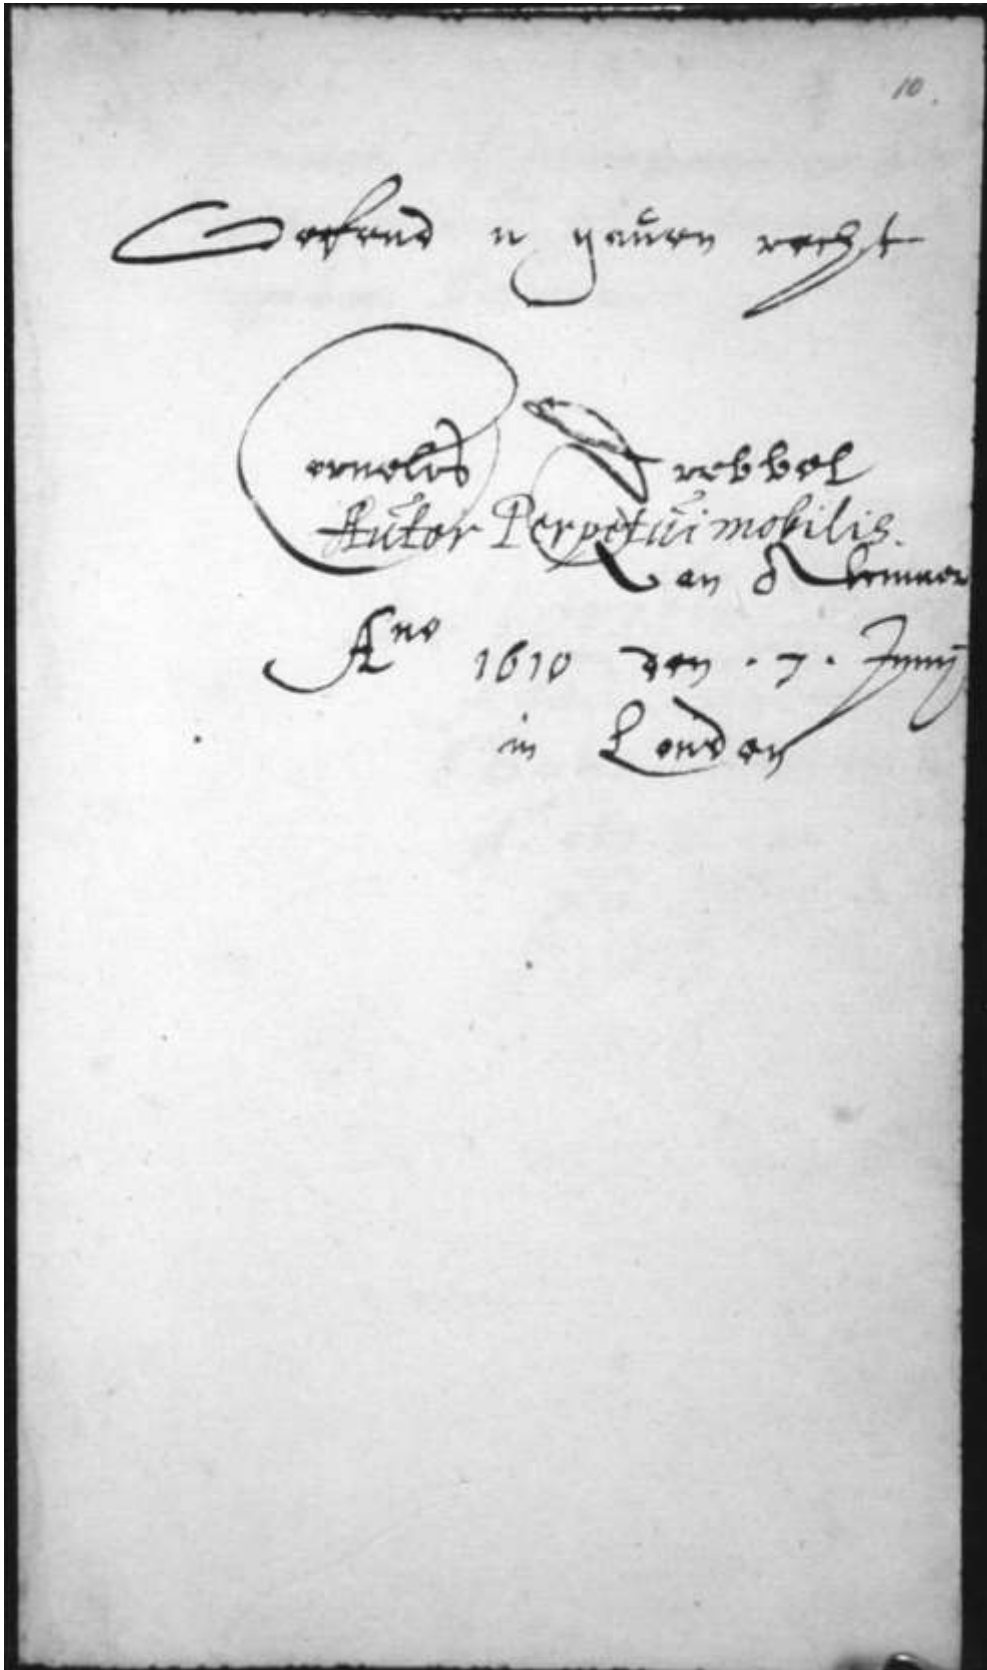 10.
Oefend u gauen recht
Cornelis Drebbel
Autor Perpetui mobilis.
Van Alcmaer
Ano 1610 den . 7 . Junij
in Londen